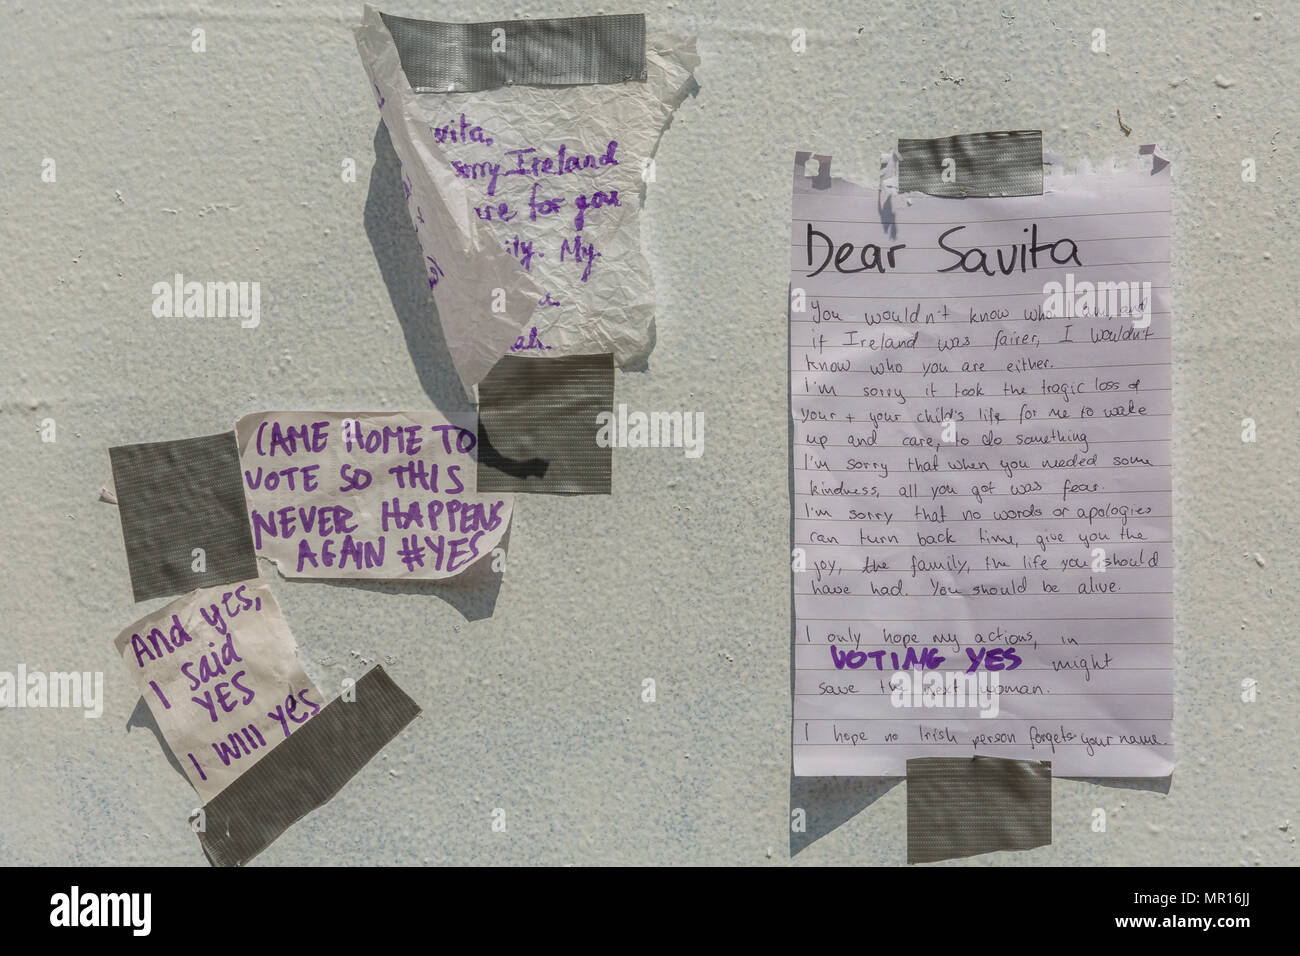 Sorry, Ireland
for you
My
CAME HOME TO
VOTE SO THIS
NEVER HAPPENS
AGAIN #YES
And yes,
I said
YES
I will yes
Dear Savita
You wouldn't know who I am, and
if Ireland was fairer, I wouldn't
know who you are either.
I'm sorry it took the tragic loss of
your + your child's life for me to wake
up and care, to do something
I'm sorry that when you needed some
kindness, all you got was fear.
I'm sorry that no words or apologies
can turn back time, give you the
joy, the family, the life you should
have had. You should be alive.
I only hope my actions, in
VOTING YES might
save the next woman.
I hope no Irish person forgets your name.
alamy stock photo
MR16JJ
www.alamy.com